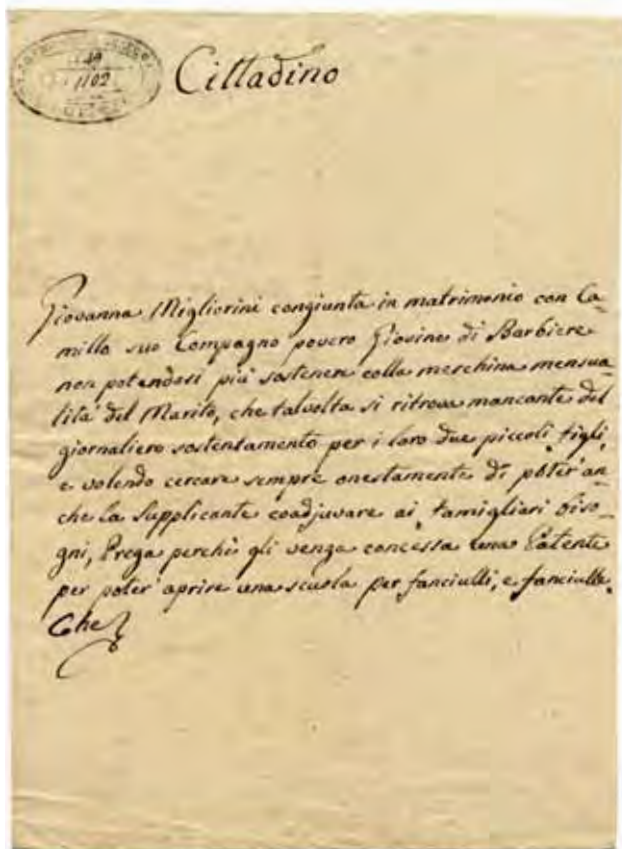 1102
Cittadino
Giovanna Migliorini congiunta in matrimonio con Ca-
millo suo Compagno povero Giovine di Barbiere
non potendosi più sostenere colla meschina mensua-
lità del Marito, che talvolta si ritrova mancante del
giornaliero sostentamento per i loro due piccoli figli,
e volendo cercare sempre onestamente di poter'an-
che la Supplicante coadjuvare ai famigliari biso-
gni, Prega perchè gli venga concessa una Patente
per poter' aprire una scuola per fanciulli, e fanciulle.
Che